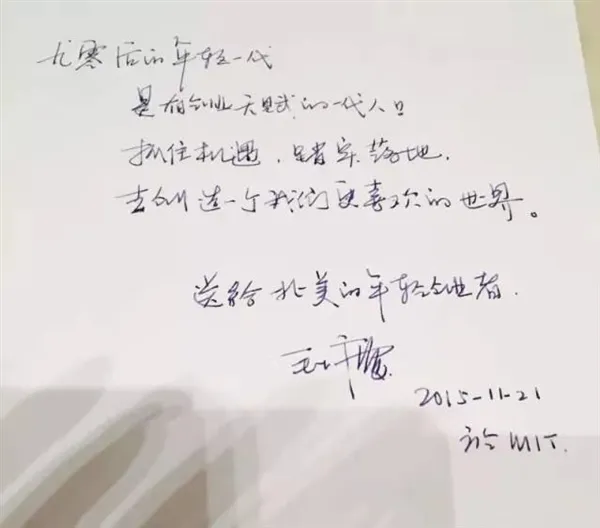 九零后的年轻一代
是有创业天赋的一代人。
抓住机遇、踏实落地,
去创造一个我们更喜欢的世界。
送给北美的年轻创业者.
2015-11-21
于 MIT.